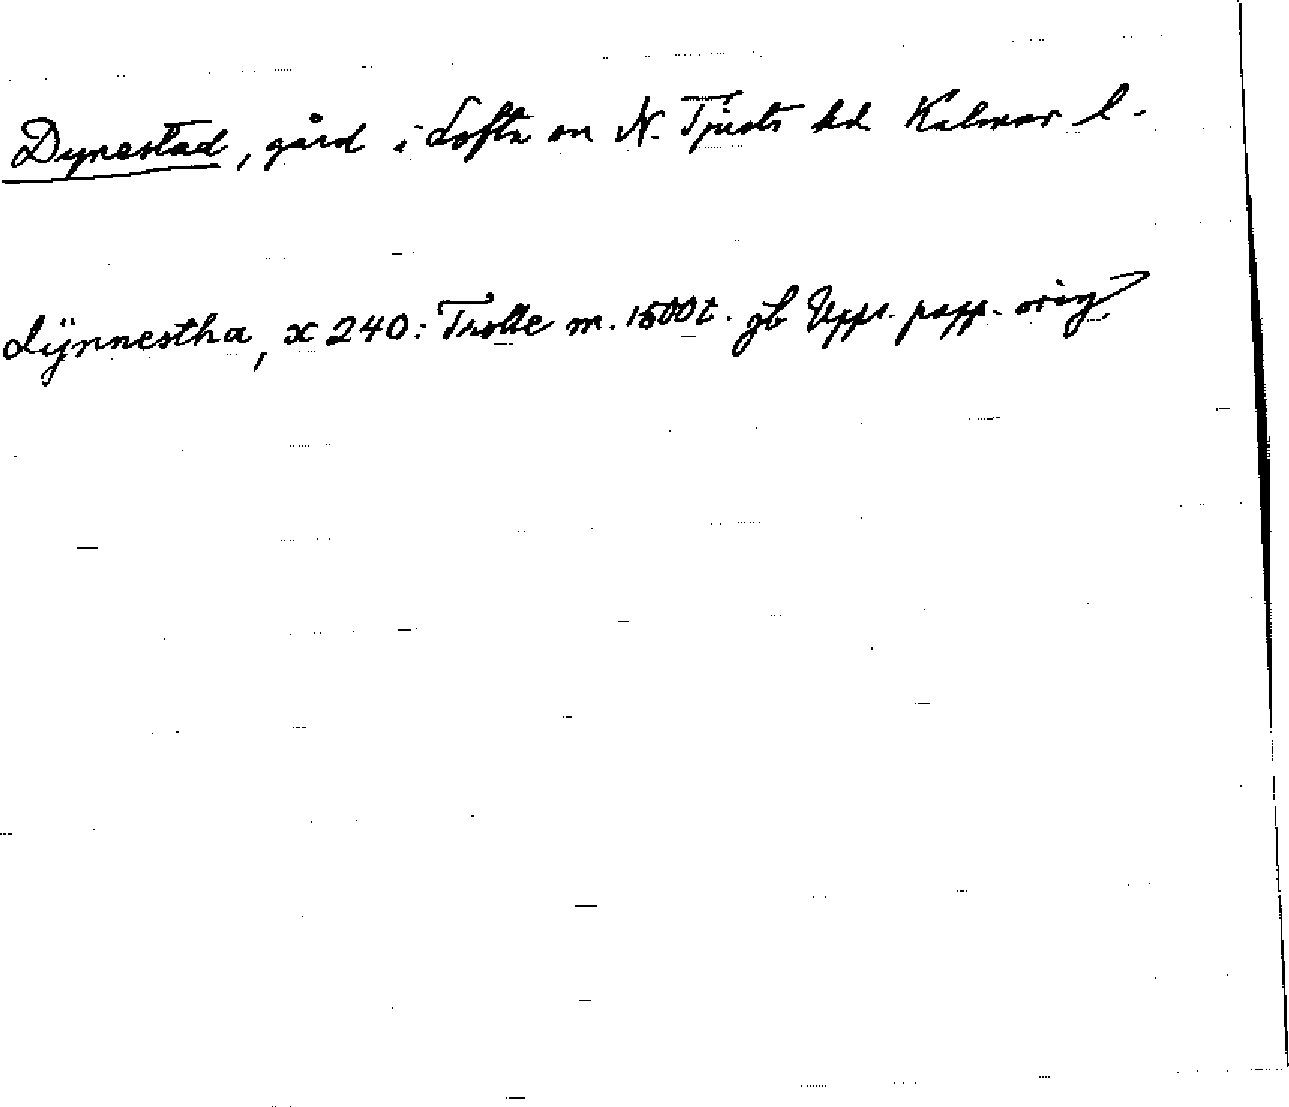 Dynestad, gård i Lofta sn N. Tjusts hd Kalmar l.
dÿnnestha, x 240: Trolle m. 1500t. jb Upps. papp. orig